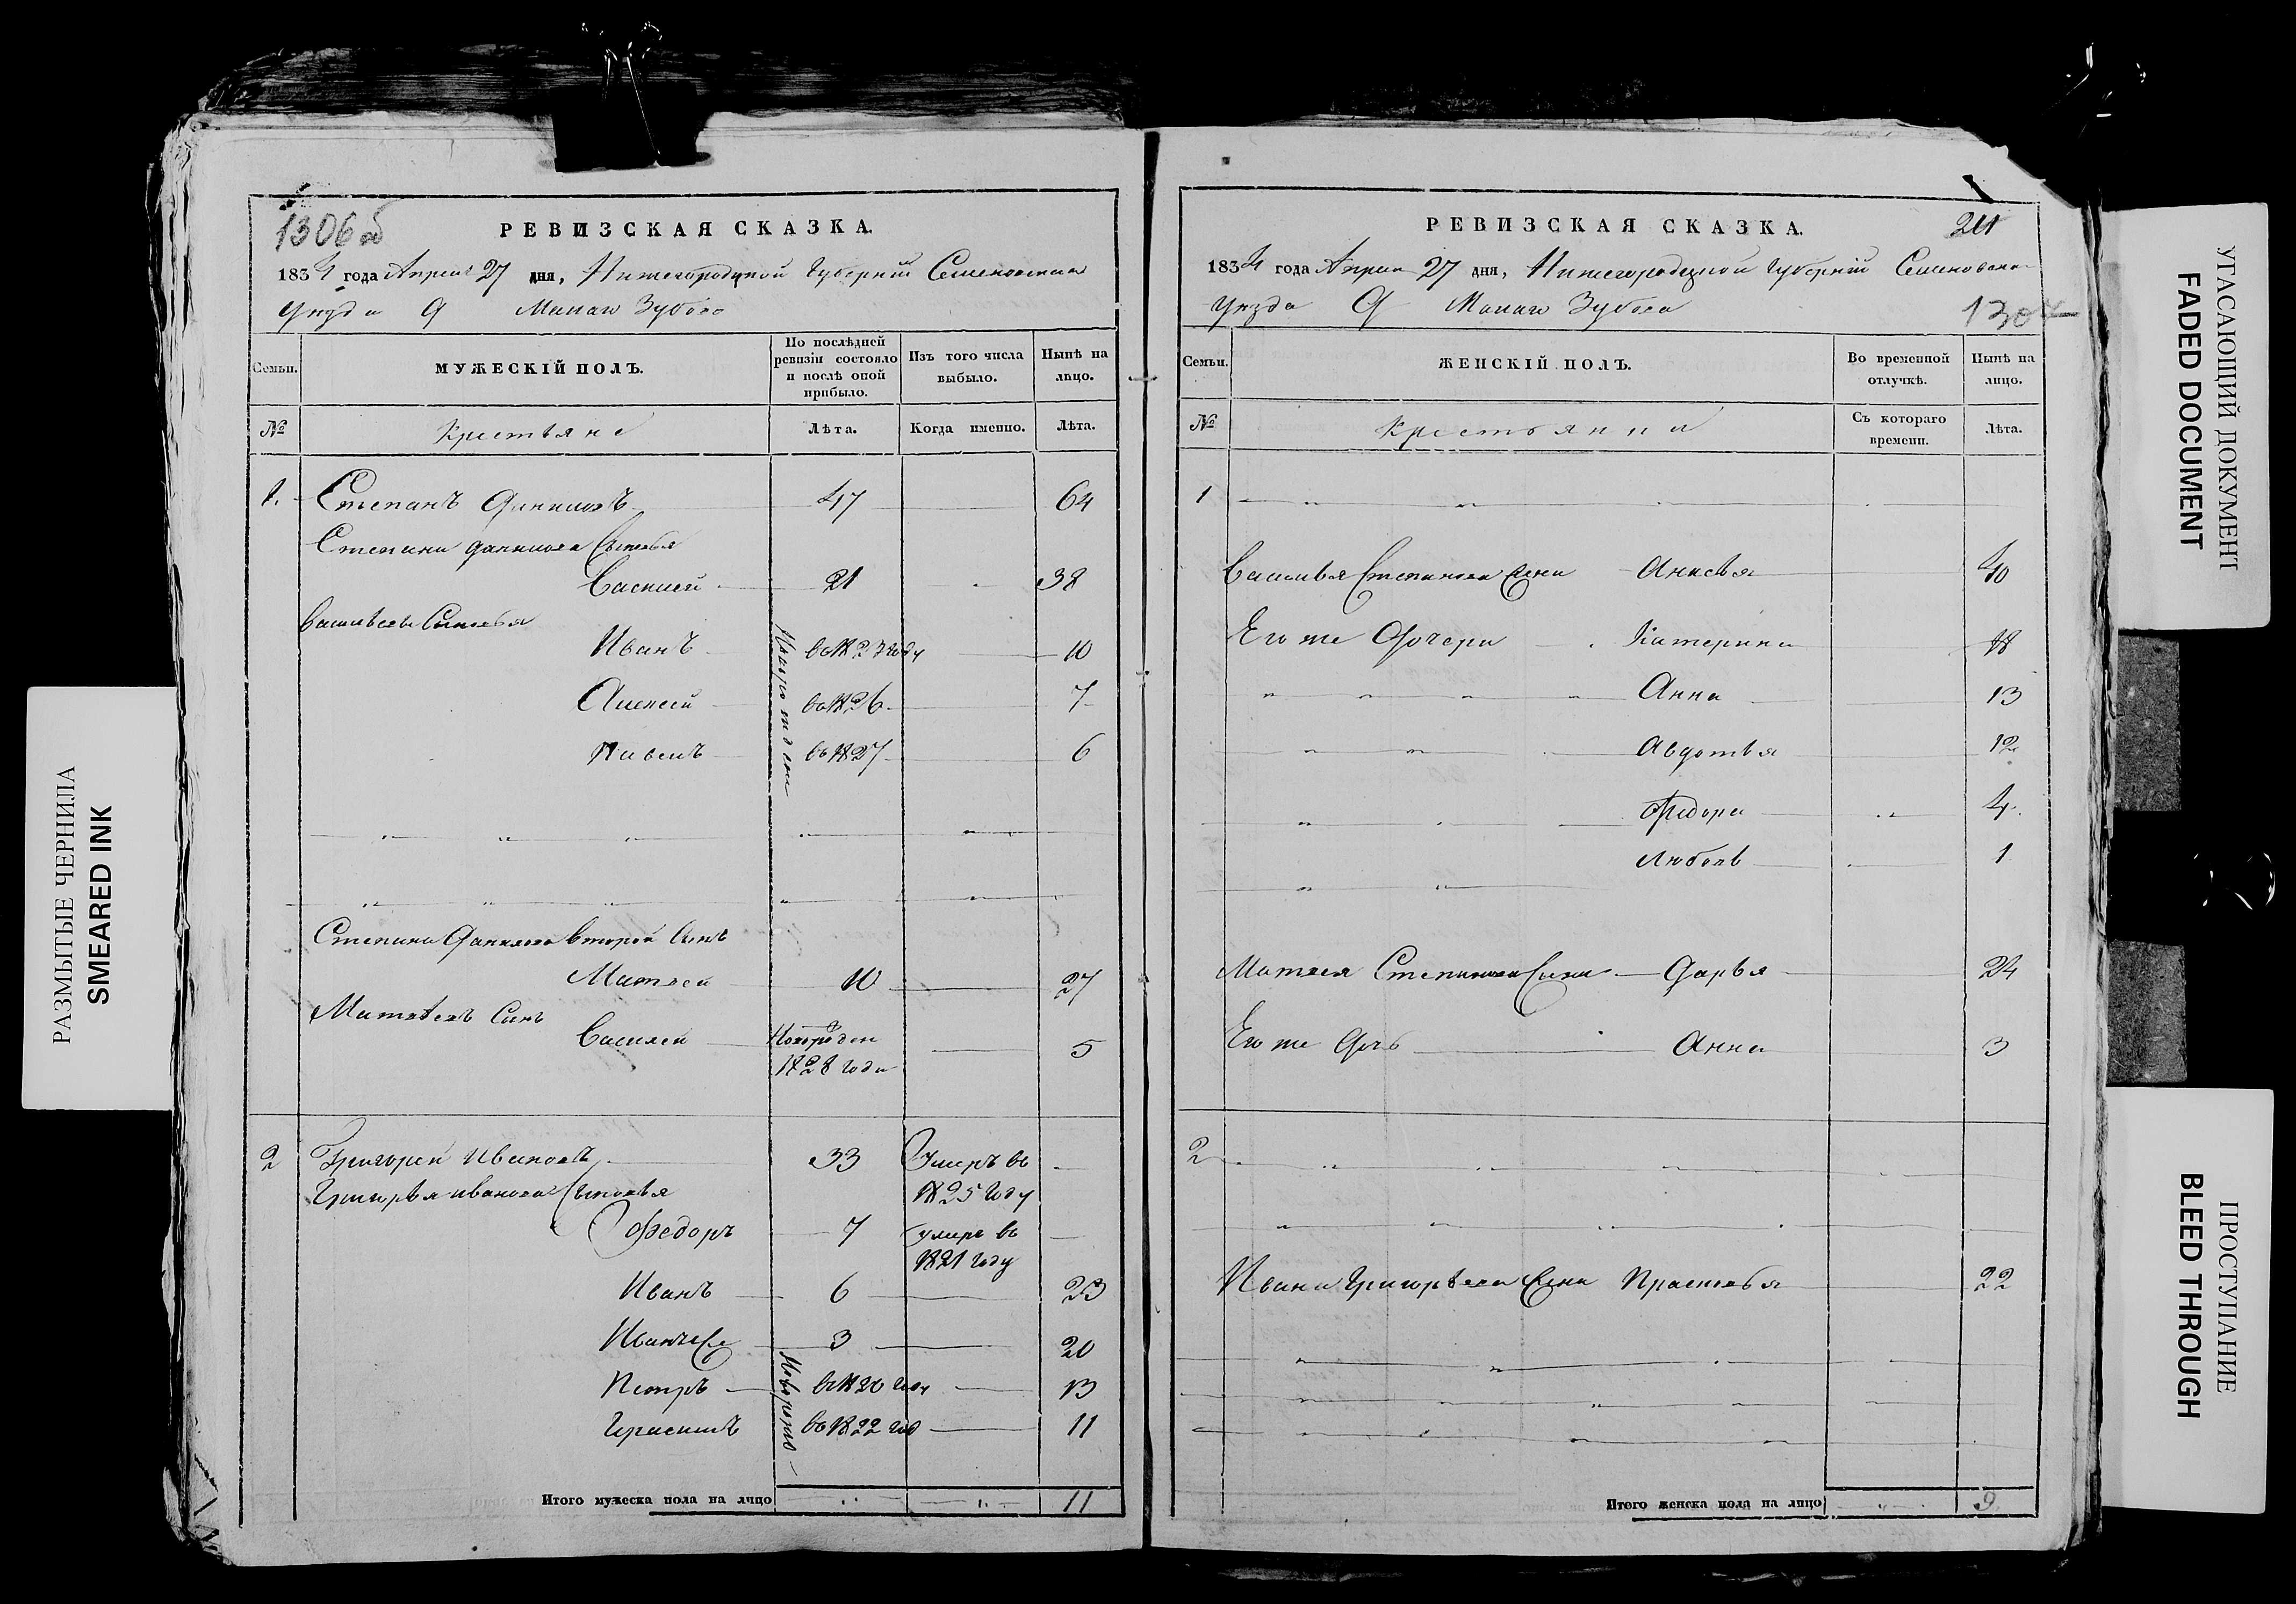 РАЗМЫТЫЕ ЧЕРНИЛА
SMEARED INK
1306 об
РЕВИЗСКАЯ СКАЗКА.
1834 года Апреля 27 дня, Нижегородской Губернии Семеновскаго
Уезда Д Малаго Зубова
Семьи.
МУЖЕСКІЙ ПОЛЪ.
По послѣдней ревизіи состояло и послѣ оной прибыло.
Изъ того числа выбыло.
Нынѣ на лицо.
№
Крестьяне
Лѣта.
Когда именно.
Лѣта.
1. Степанъ Даниловъ 47 64
Степана Данилова Сыновья
Василей 21 38
Васильевы Сыновья
Иванъ во 1823 году 10
Алексей во 1826 7
Павелъ во 1827 6
Новорождены
Степана Данилова второй Сынъ
Матвей 10 27
Матвеевъ Сынъ
Василей Новорожден 1828 года 5
2 Григорей Ивановъ 33 Умеръ во 1825 году
Григорья Иванова Сыновья
Федоръ 7 умеръ во 1821 году
Иванъ 6 23
Иванъ 3 20
Петръ во 1820 году 13
Герасимъ во 1822 год 11
Итого мужеска пола на лицо 11
РЕВИЗСКАЯ СКАЗКА.
211
1834 года Апреля 27 дня, Нижегородской Губернии Семеновскаго
Уезда Д Малаго Зубова
1307
Семьи.
ЖЕНСКІЙ ПОЛЪ.
Во временной отлучкѣ.
Нынѣ на лицо.
№
Крестьянки
Съ котораго времени.
Лѣта.
1
Василья Степанова Жена Анисья 40
Его же Дочери Катерина 18
Анна 13
Авдотья 12
Федора 4
Любовь 1
Матвея Степанова Жена Дарья 24
Его же Дочь Анна 3
2
Ивана Григорьева Жена Прасковья 22
Итого женска пола на лицо 9
УГАСАЮЩИЙ ДОКУМЕНТ
FADED DOCUMENT
ПРОСТУПАНИЕ
BLEED THROUGH